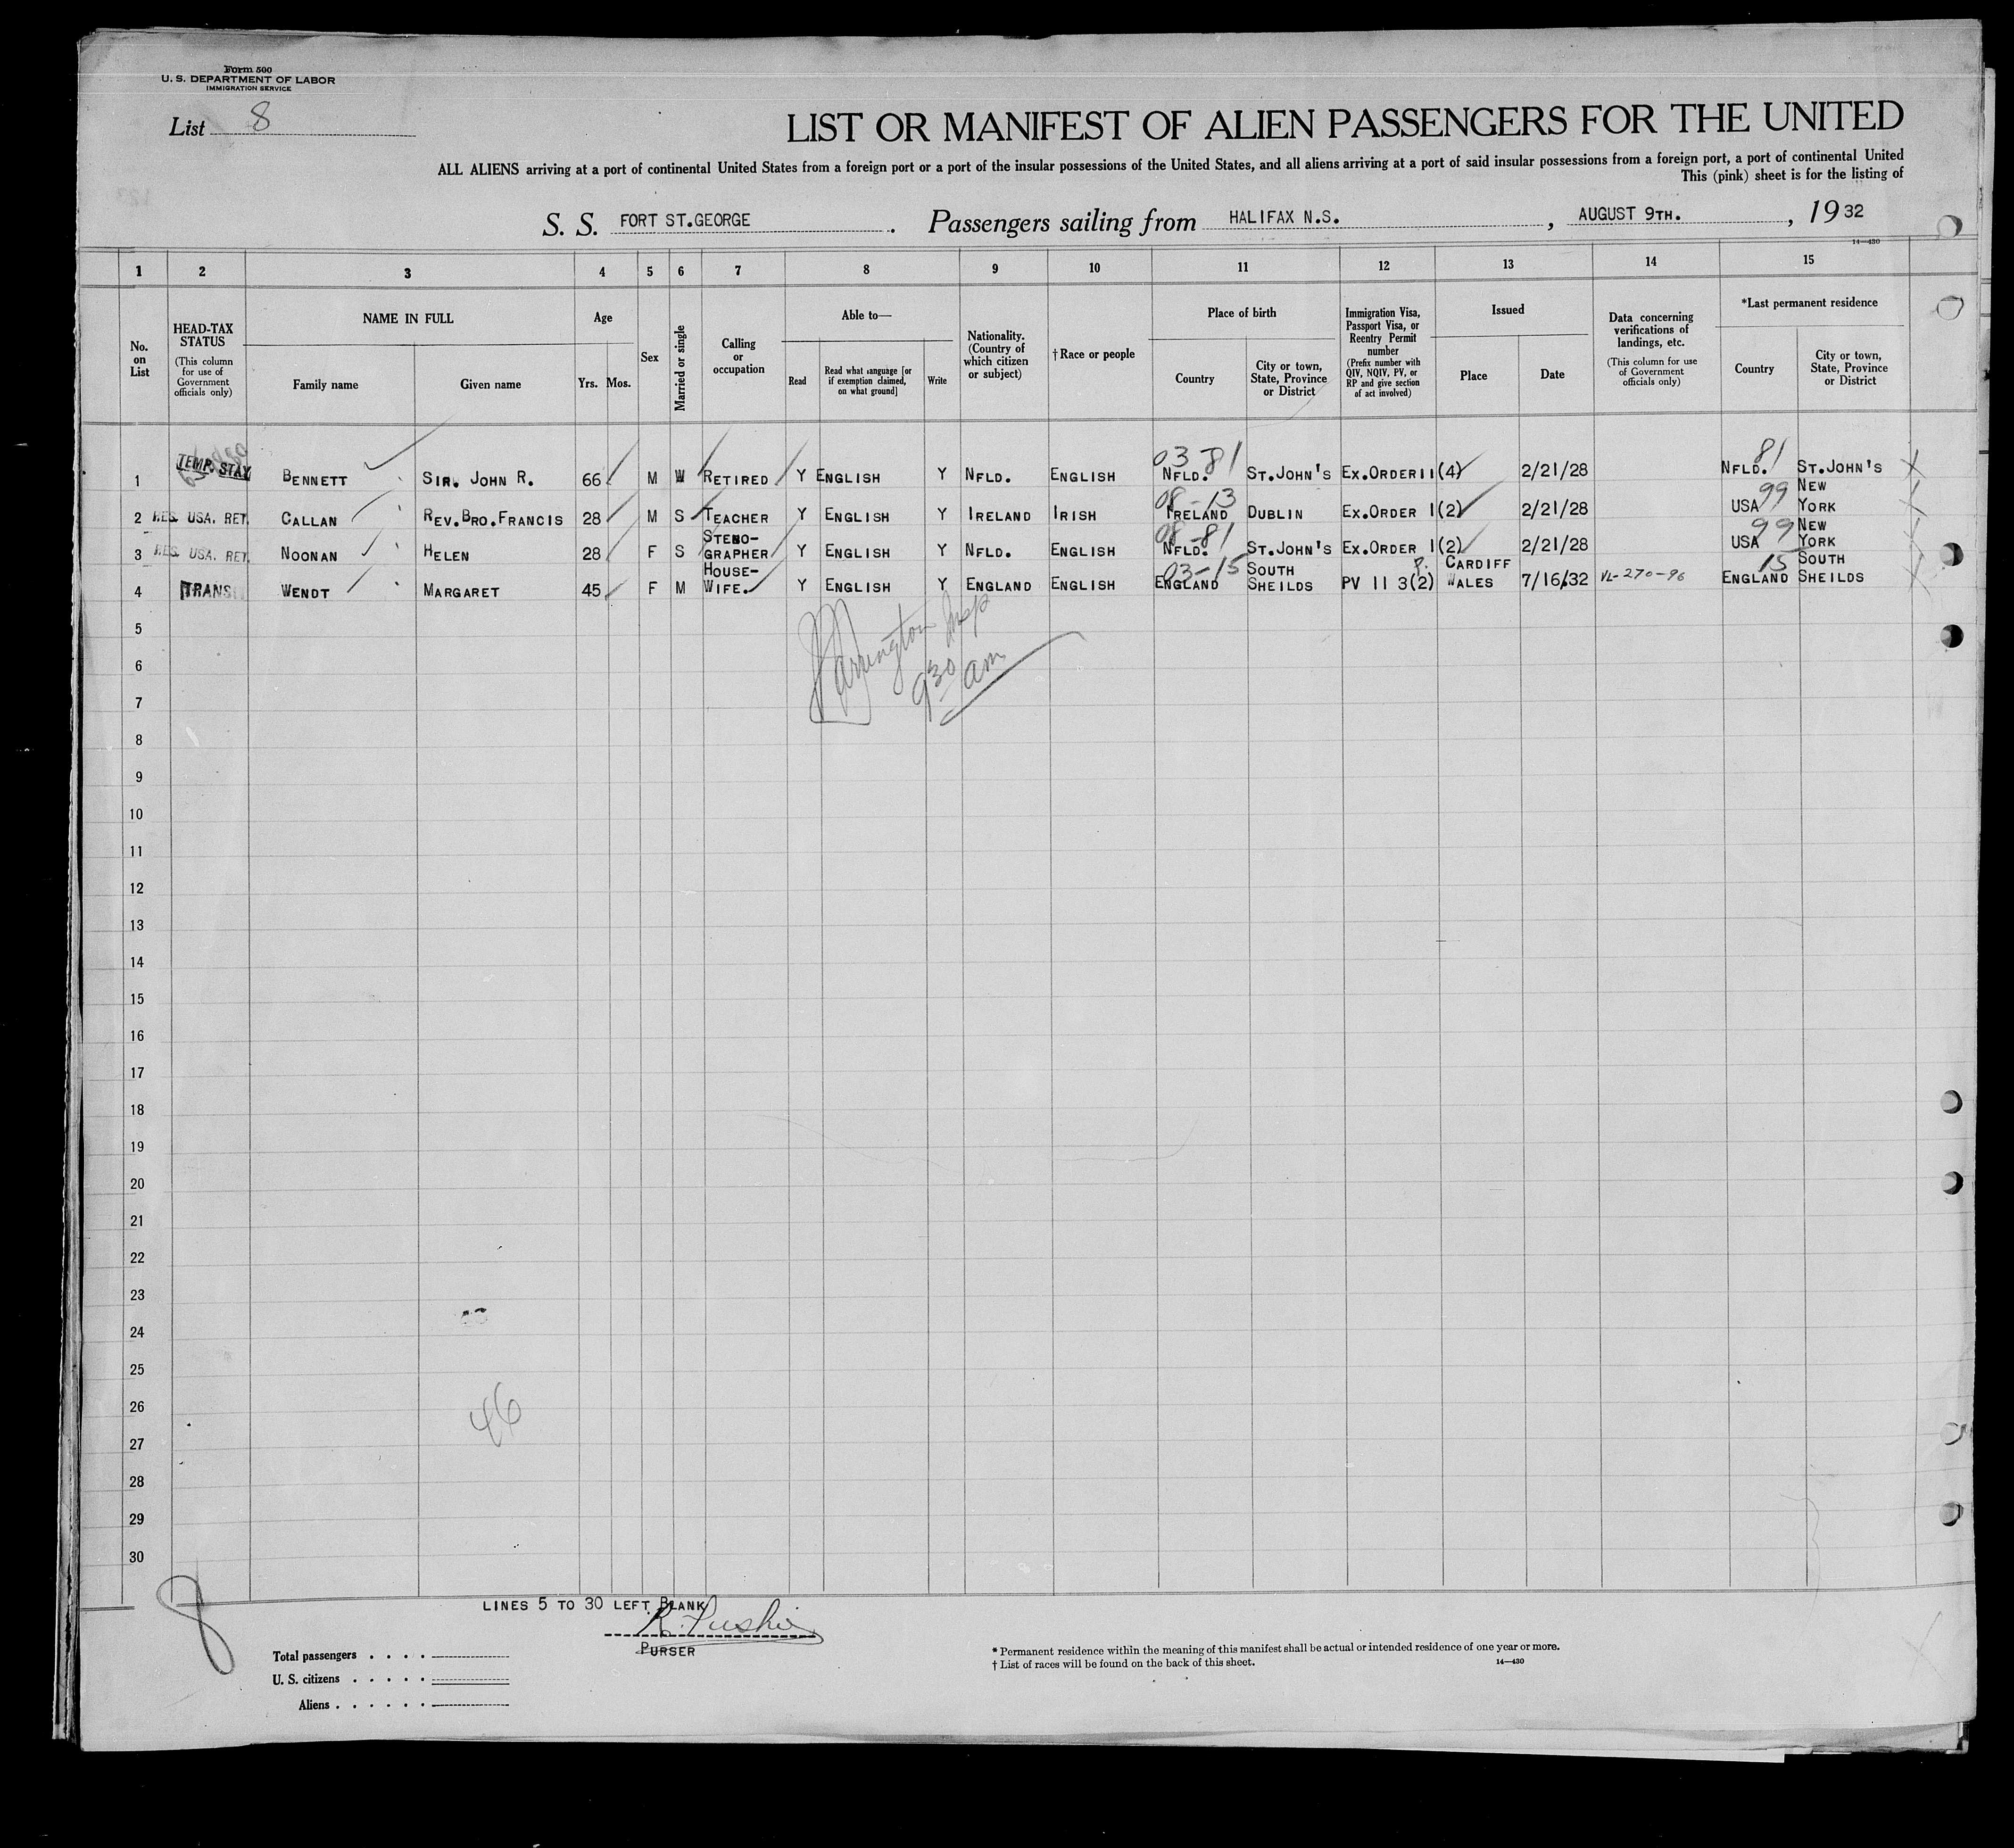 Form 500
U. S. DEPARTMENT OF LABOR
IMMIGRATION SERVICE
List 8
LIST OR MANIFEST OF ALIEN PASSENGERS FOR THE UNITED
ALL ALIENS arriving at a port of continental United States from a foreign port or a port of the insular possessions of the United States, and all aliens arriving at a port of said insular possessions from a foreign port, a port of continental United
This (pink) sheet is for the listing of
S. S. FORT ST.GEORGE . Passengers sailing from HALIFAX N.S. , AUGUST 9TH. , 19 32
14—430
1 2 3 4 5 6 7 8 9 10 11 12 13 14 15
No. on List
HEAD-TAX STATUS
(This column for use of Government officials only)
NAME IN FULL
Family name
Given name
Age
Yrs. Mos.
Sex
Married or single
Calling or occupation
Able to—
Read
Read what language [or if exemption claimed, on what ground]
Write
Nationality. (Country of which citizen or subject)
†Race or people
Place of birth
Country
City or town, State, Province or District
Immigration Visa, Passport Visa, or Reentry Permit number
(Prefix number with QIV, NQIV, PV, or RP and give section of act involved)
Issued
Place
Date
Data concerning verifications of landings, etc.
(This column for use of Government officials only)
*Last permanent residence
Country
City or town, State, Province or District
03-81 81
1 TEMP. STAY BENNETT SIR. JOHN R. 66 M W RETIRED Y ENGLISH Y NFLD. ENGLISH NFLD. ST.JOHN'S EX.ORDER II(4) 2/21/28 NFLD. ST.JOHN'S
08-13 99 NEW
2 RES. USA. RET. CALLAN REV.BRO.FRANCIS 28 M S TEACHER Y ENGLISH Y IRELAND IRISH IRELAND DUBLIN EX.ORDER I(2) 2/21/28 USA YORK
STENO- 08-81 99 NEW
3 RES. USA. RET. NOONAN HELEN 28 F S GRAPHER Y ENGLISH Y NFLD. ENGLISH NFLD. ST.JOHN'S EX.ORDER I(2) 2/21/28 USA YORK
HOUSE- 03-15 SOUTH P. CARDIFF 15 SOUTH
4 TRANSIT WENDT MARGARET 45 F M WIFE. Y ENGLISH Y ENGLAND ENGLISH ENGLAND SHEILDS PV II 3(2) WALES 7/16/32 VL-270-96 ENGLAND SHEILDS
5
6
7
Insp
930 am
8
9
10
11
12
13
14
15
16
17
18
19
20
21
22
23
24
25
26
46
27
28
29
30
8
LINES 5 TO 30 LEFT BLANK
PURSER
Total passengers
U. S. citizens
Aliens
* Permanent residence within the meaning of this manifest shall be actual or intended residence of one year or more.
† List of races will be found on the back of this sheet.
14—430